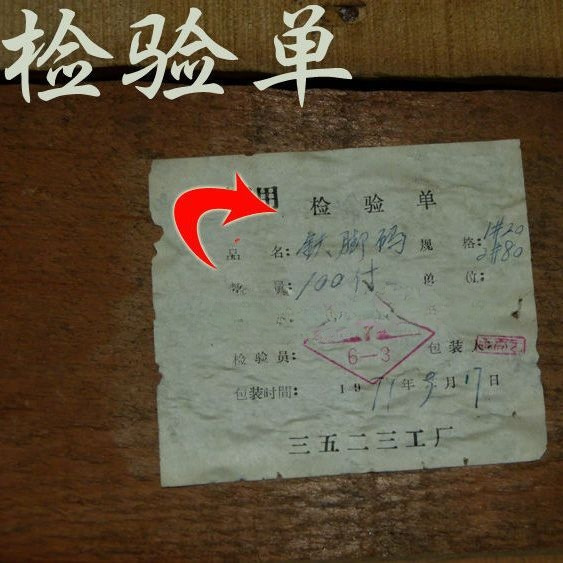 检验单
用 检验单
品名:铁脚码 规格:1#20
2#80
数量:100付 单位:
7
6-3
检验员: 包装人
包装时间:1971年9月17日
三五二三工厂